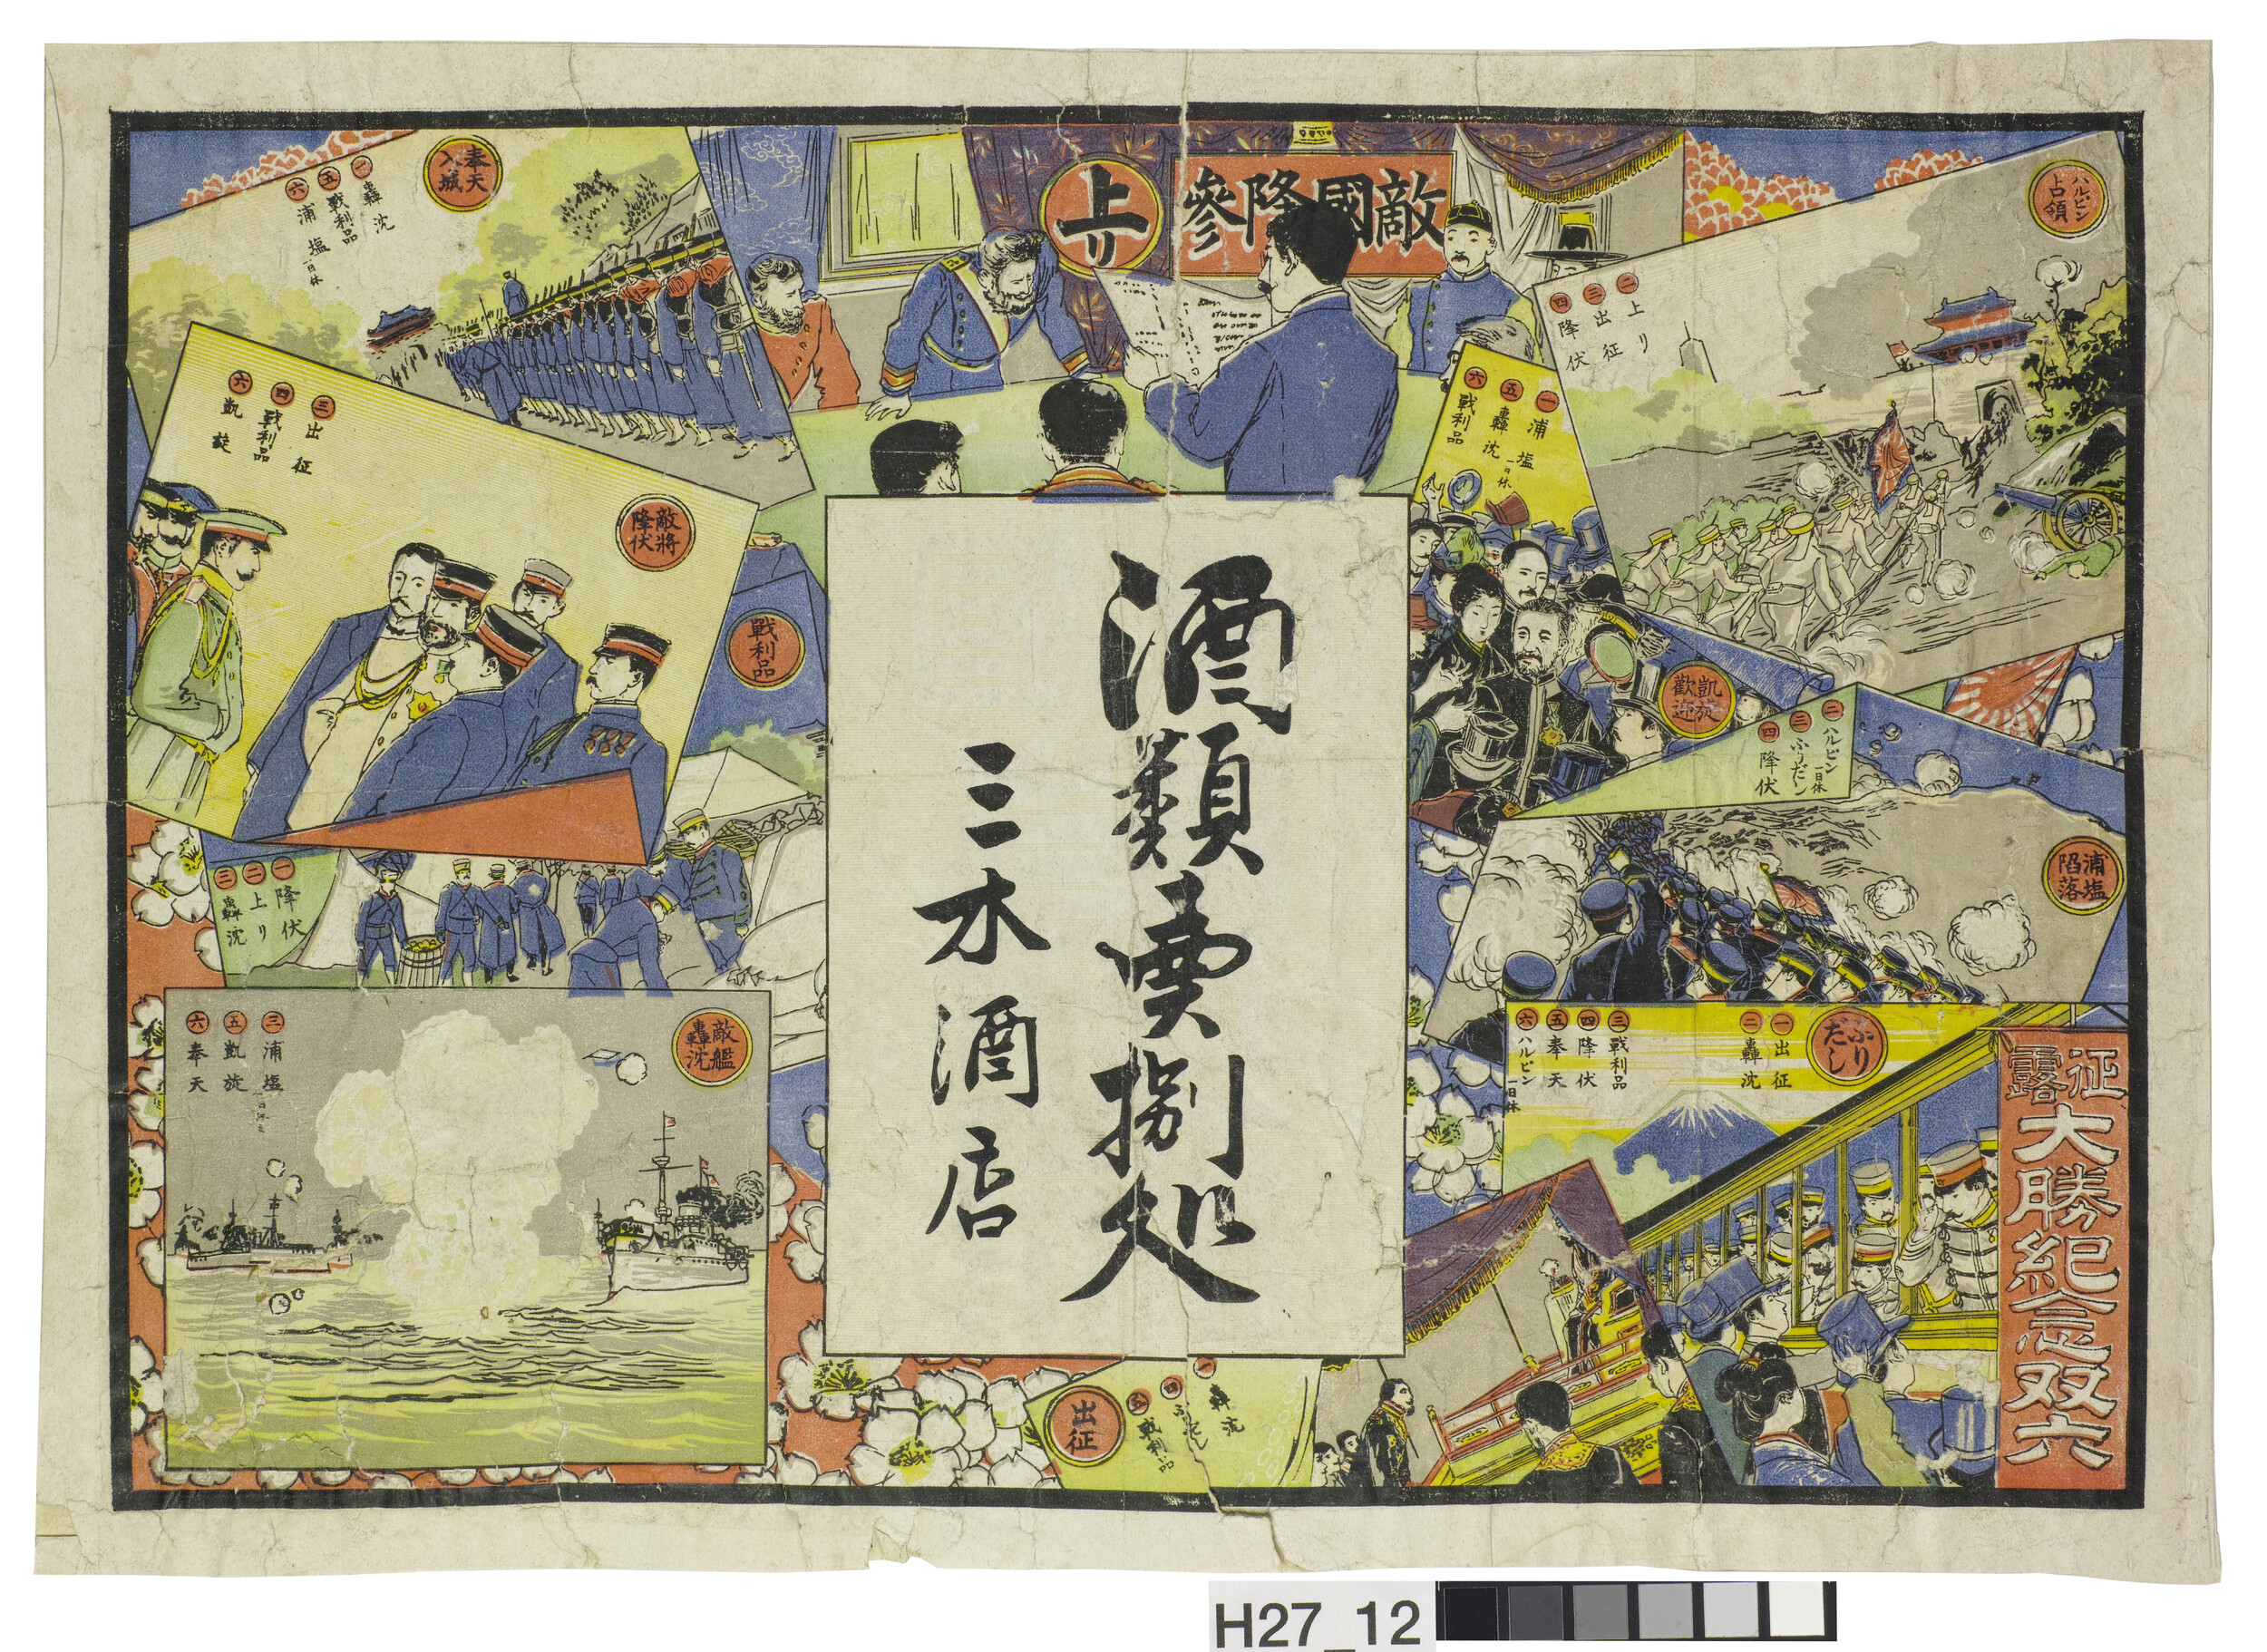 征露
大勝紀念双六
ふりだし
一 出征
二 轟沈
三 戦利品
四 降伏
五 奉天
六 ハルピン 一日休
出征
一 轟沈
四 ふりだし
五 戦利品
敵艦轟沈
三 浦塩
五 凱旋
六 奉天
浦塩陥落
二 ハルピン 一日休
三 ふりだし
四 降伏
戦利品
一 降伏
二 上り
三 轟沈
凱旋歓迎
一 浦塩 一日休
五 轟沈
六 戦利品
敵將降伏
三 出征
四 戦利品
六 凱旋
ハルピン占領
二 上リ
三 出征
四 降伏
奉天入城
一 轟沈
五 戦利品
六 浦塩 一日休
上リ
敵國降參
酒類賣捌処
三木酒店
H27_12